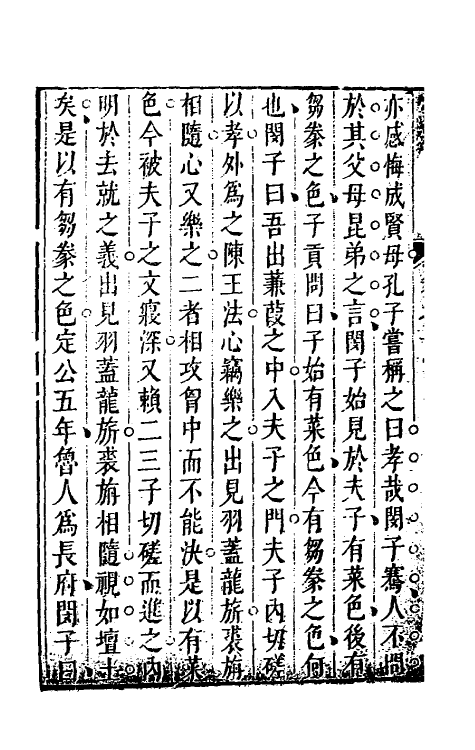 亦感悔成賢母孔子嘗稱之曰孝哉閔子騫人不問
於其父母昆弟之言閔子始見於夫子有菜色後有
芻豢之色子貢問曰子始有菜色今有芻豢之色何
也閔子曰吾出蒹葭之中入夫子之門夫子內切磋
以孝外爲之陳王法心竊樂之出見羽蓋龍旂裘旃
相隨心又樂之二者相攻胷中而不能决是以有菜
色今被夫子之文寢深又賴二三子切磋而進之內
明於去就之義出見羽蓋龍旂裘旃相隨視如壇土
矣是以有芻豢之色定公五年魯人爲長府閔子曰